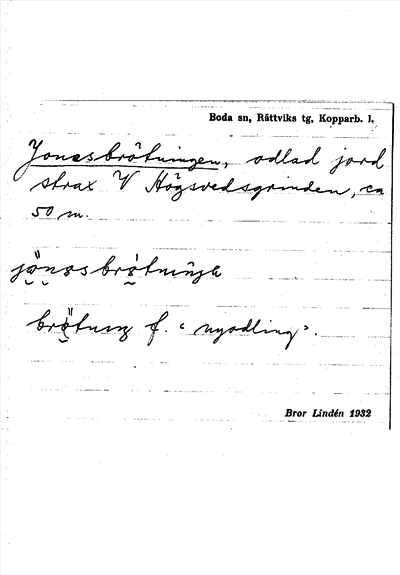 Boda sn, Rättviks tg, Kopparb. l.
Jonasbrötningen, odlad jord
strax V Högsvedsgrinden, ca
50 m.
brötning f. "nyodling".
Bror Lindén 1932